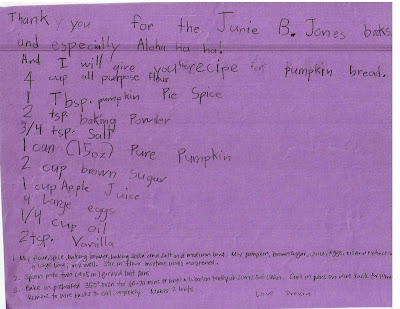 Thank you for the Junie B. Jones books
and especially Aloha ha ha!
And I will give you the recipe for pumpkin bread.
4 cup all purpose flour
1 Tbsp. pumpkin Pie Spice
2 tsp. baking Powder
3/4 tsp. Salt
1 can (15oz) Pure Pumpkin
2 cup brown Sugar
1 cup Apple Juice
4 Large eggs
1/4 cup oil
2 tsp. Vanilla
1. Mix flour, spice, baking powder, baking soda and salt in medium bowl. Mix pumpkin, brown sugar, juice, eggs, oil and
a large bowl, mix well. Stir in flour mixture until moistened.
2. Spoon into two (9x5 in) greased loaf pans
3. Bake in preheated 350° oven for 60-70 mins or until a wooden toothpick comes out clean. Cool in pans on wire rack for 10 mins
Remove to wire racks to cool completely. Makes 2 loafs.
Love